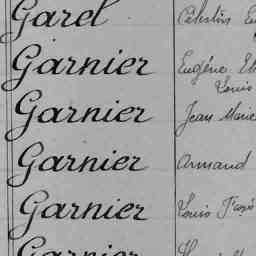 Garel Célestin
Garnier Eugène
Louis
Garnier Jean Marie
Garnier Armand
Garnier Louis
Garnier